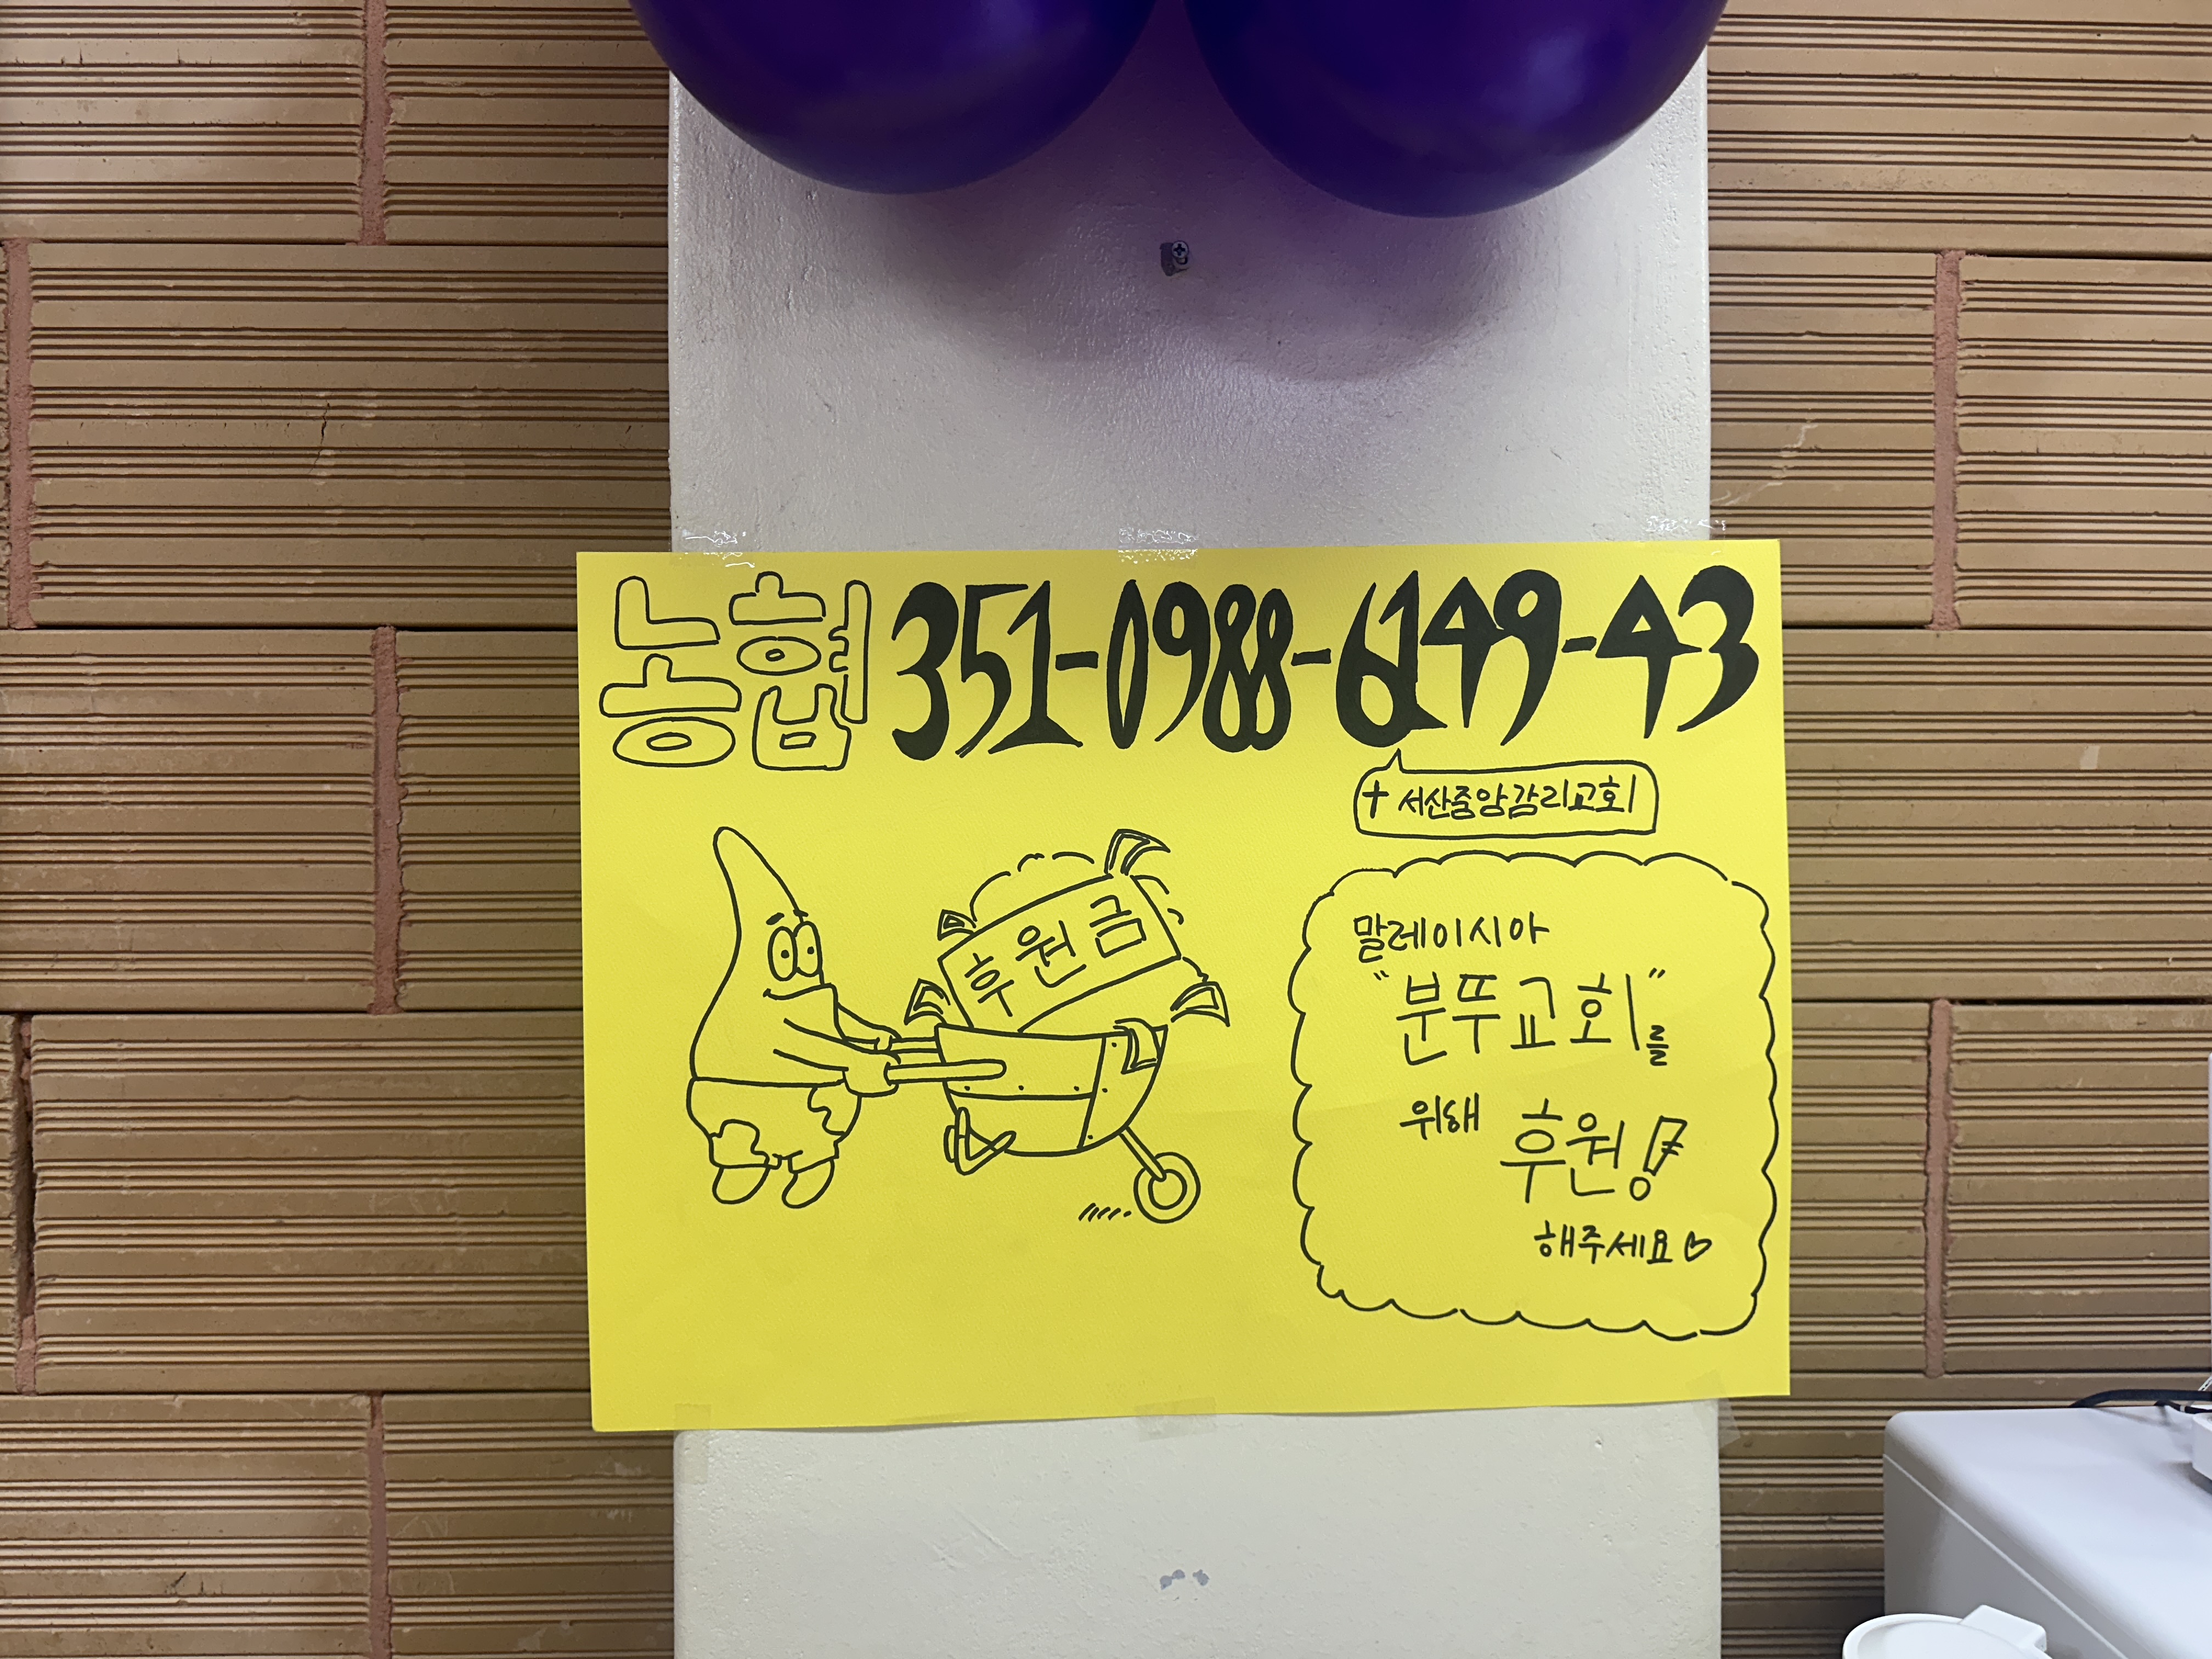 농협 351-0988-6149-43
+ 서산중앙감리교회
후원금
말레이시아
"분뚜교회"를
위해 후원!
해주세요♡